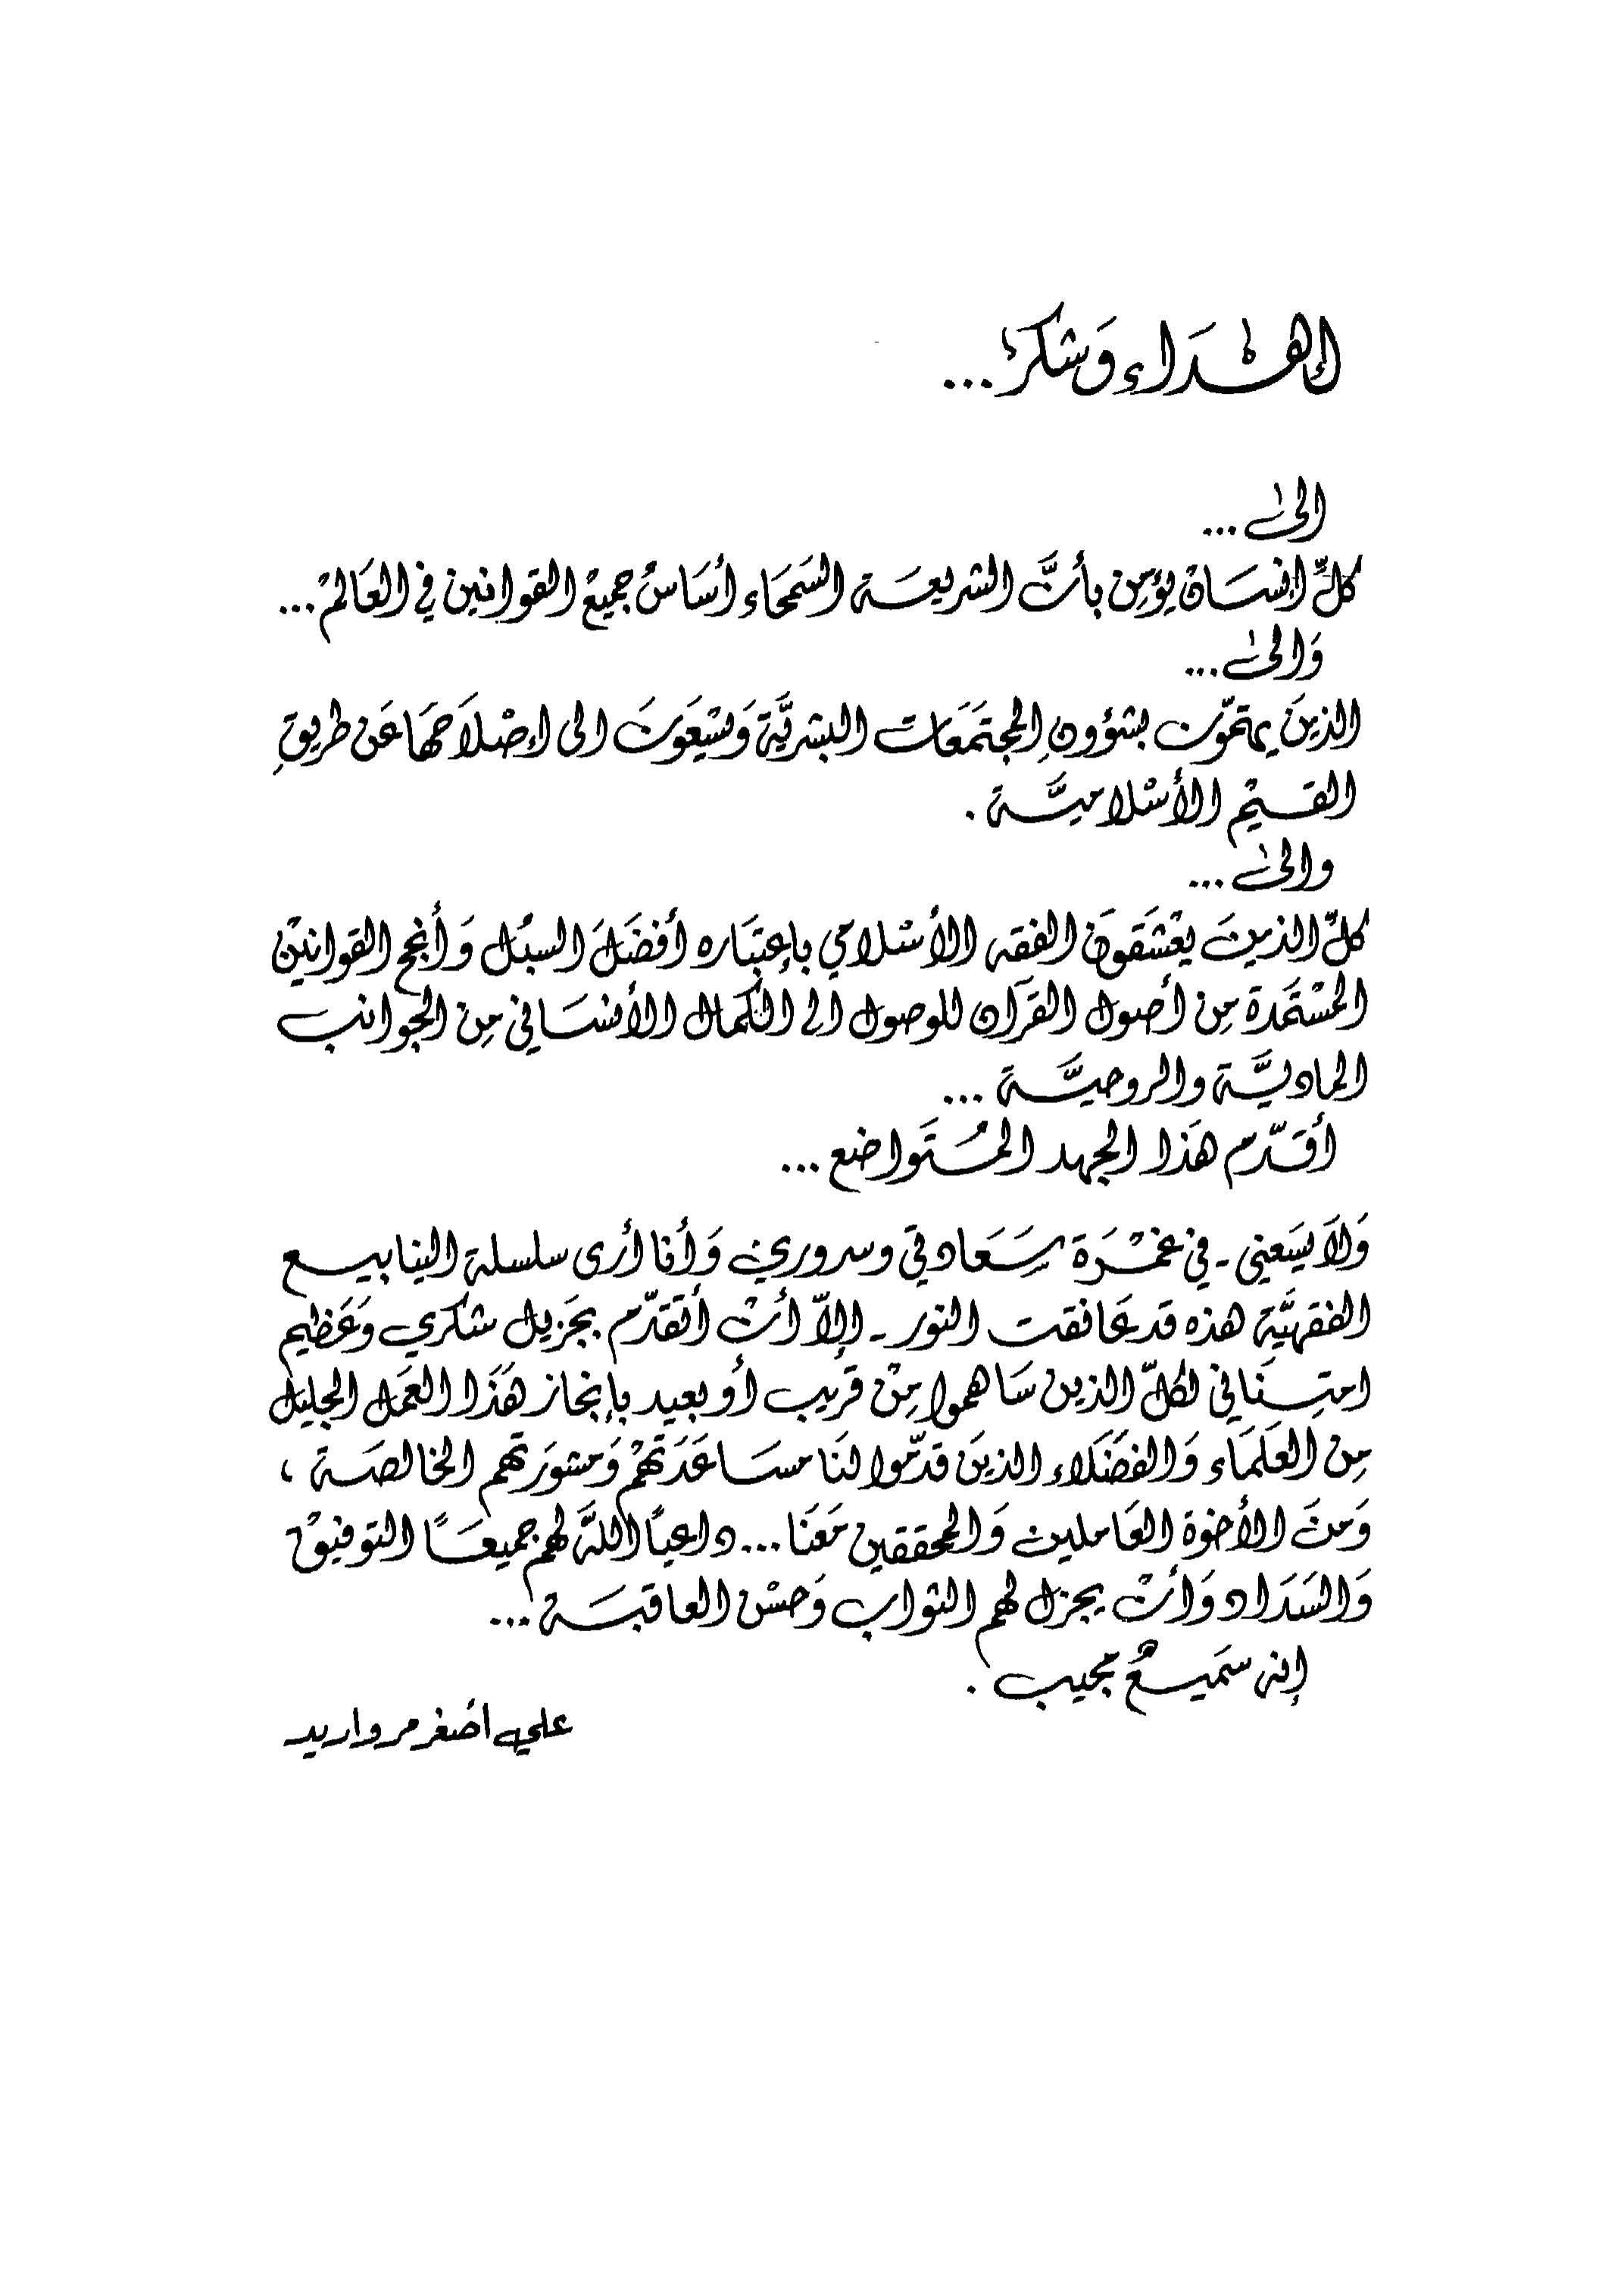 إهداء وشكر...
الى...
كلِّ إنسان يؤمن بأنَّ الشريعة السمحاء أساسُ جميع القوانين في العالم...
وَالى...
الذينَ يهتمّون بشؤونِ المجتمَعات البشريَّة وَيسْعَونَ الى إصْلاَحهَا عَن طريقِ
القيم الأسْلاميَّة .
والى...
كلِّ الذينَ يعْشَقونَ الفقه الأسْلامي بإعتبَاره أفضَلَ السبُل وَأنجح القوانيْن
المسْتمَدة مِن أصول القرآن للوصول الى الكمال الأنسَاني مِن الجوانب
الماديَّة والروحيَّة ...
أقدّم هَذا الجهد المُتَواضع...
وَلاَ يسَعني - في غمْرَة سَعَادتي وسروري وَأنا أرى سلسلة الينابيع
الفقهيَّة هذه قد عَانقت النور - إلاّ أنْ أتقدّم بجَزيل شكري وَعَظيم
امتِنَاني لكلّ الذين سَاهموا مِنْ قريب أو بعيد بإنجاز هَذا العمَل الجليل
مِن العلمَاء وَالفضَلاء الذينَ قدّموا لنَا مساعَدَتهمْ وَمشورَتهم الخالصَة ،
وَمنَ الأخوة العَاملين وَالمحققين مَعَنا... داعياً اللهَ لهم جميعاً التوفيقْ
وَالسَدَاد وَأنْ يجزل لهم الثواب وَحسْن العاقبَة ...
إنه سَميعٌ مجيب .
علي اصغر مرواريد